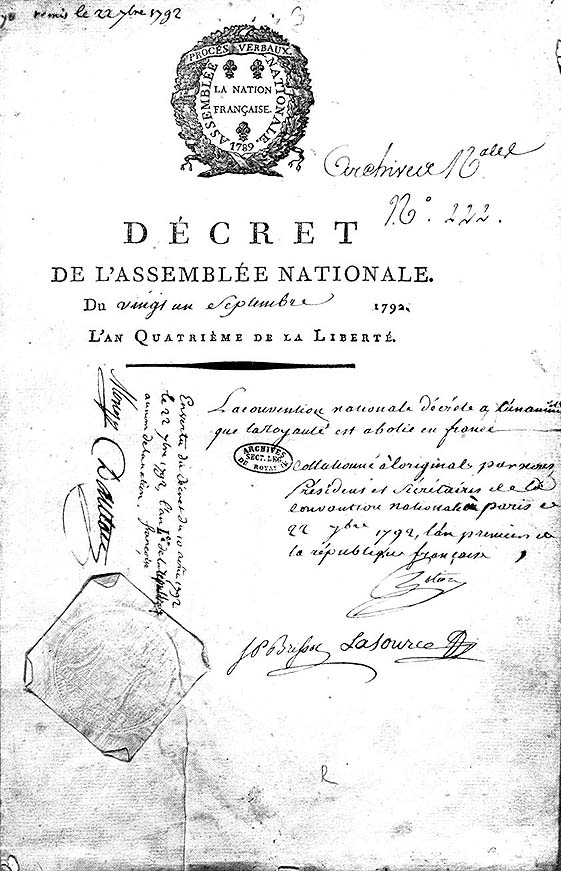 remis le 22 7bre 1792
PROCÈS VERBAUX.
ASSEMBLÉE NATIONALE.
LA NATION
FRANÇAISE.
1789
Archives Nales
No. 222.
DÉCRET
DE L'ASSEMBLÉE NATIONALE.
Du vingt un Septembre 1792.
L'AN QUATRIÈME DE LA LIBERTÉ.
La convention nationale décrète a l'unanimité
que la Royauté est abolie en france
ARCHIVES
SECT. LEG.
DU ROYAUME
Collationné à l'original par nous
Président et Sécrétaires de la
convention nationale à paris ce
22 7bre 1792, l'an premier de
la république françoise
JP Brissot Lasource
En vertu du Décret du 10 août 1792
le 22 7bre 1792 l'an 1er de la République
au nom de la nation. françoise
Monge
Danton